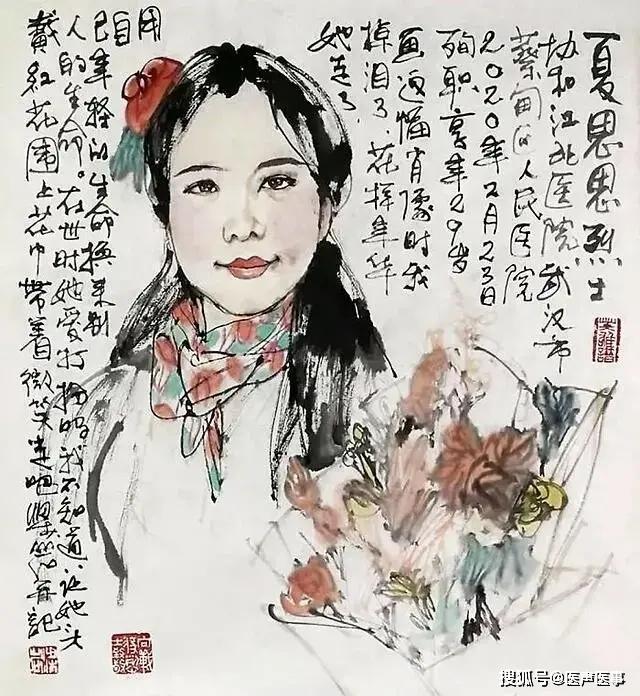 夏思思烈士
协和江北医院武汉市
蔡甸区人民医院
2020年2月23日
殉职享年29岁
画这幅肖像时我
掉泪了,花样年华
她走了,
用
自
己年轻的生命换来别
人的生命。在世时她爱打扮吗我不知道,让她头
戴红花围上花巾带着微笑走吧 再记
搜狐号@医声医事